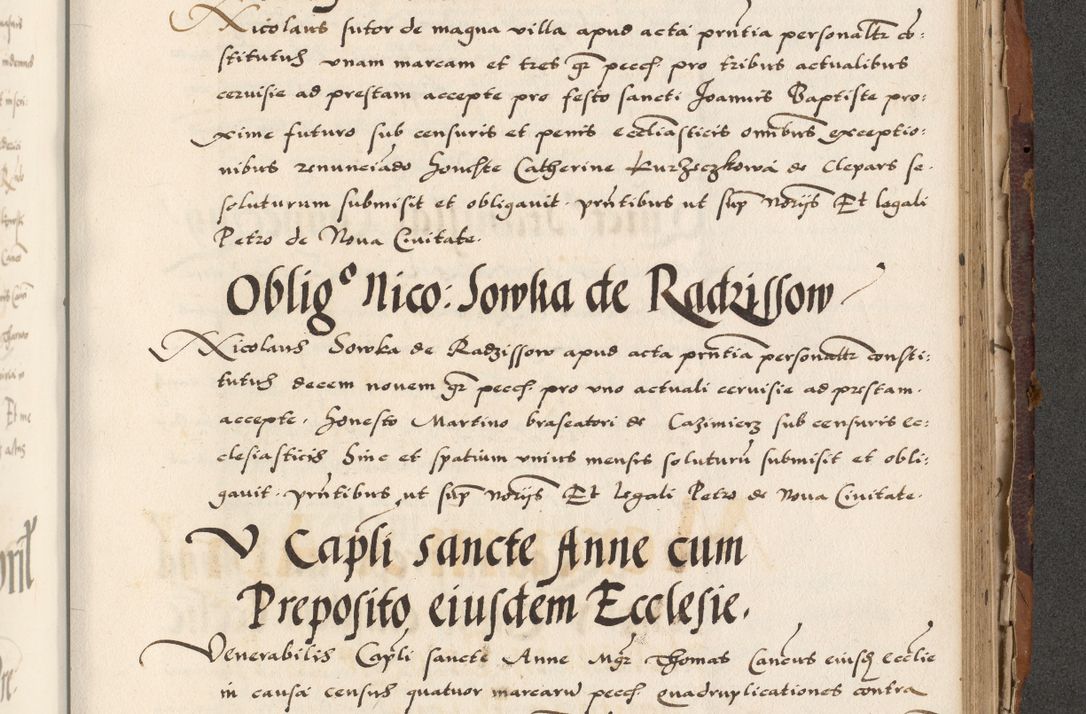 Nicolaus sutor de magna villa apud acta prntia personalr co:
stitutus vnam marcam et tres gr pecc pro tribus actualibus
cervisie ad prestam accepte pro festo sancti Joannis Baptiste pro:
xime futuro sub censuris et penis eccliasticis omibus exceptio:
nibus renunciado honeste Catherine Kurzeczkowa de Clepars se
soluturum submisit et obligavit. prntibus ut sup notrijs Et legali
Petro de Nova Civitate.
Oblig° Nico: Sowka de Radzissow
Nicolaus Sowka de Radzissow apud acta prntia personalr consti:
tutus decem novem gr pecc pro vno actuali cervisie ad prestam
accepte. Honesto Martino braseatori de Cazimierz sub censuris ec:
clesiasticis hinc et spatium vnius mensis soluturu submisit et obli:
gavit. prntibus ut sup notrijs Et legali Petro de Nova Civitate.
V Capli sancte Anne cum
Preposito eiusdem Ecclesie.
Venerabilis Capli sancte Anne Mgr Thomas Cancus eiusd Ecclie
in causa census quatuor marcaru pecc quadruplicationes contra